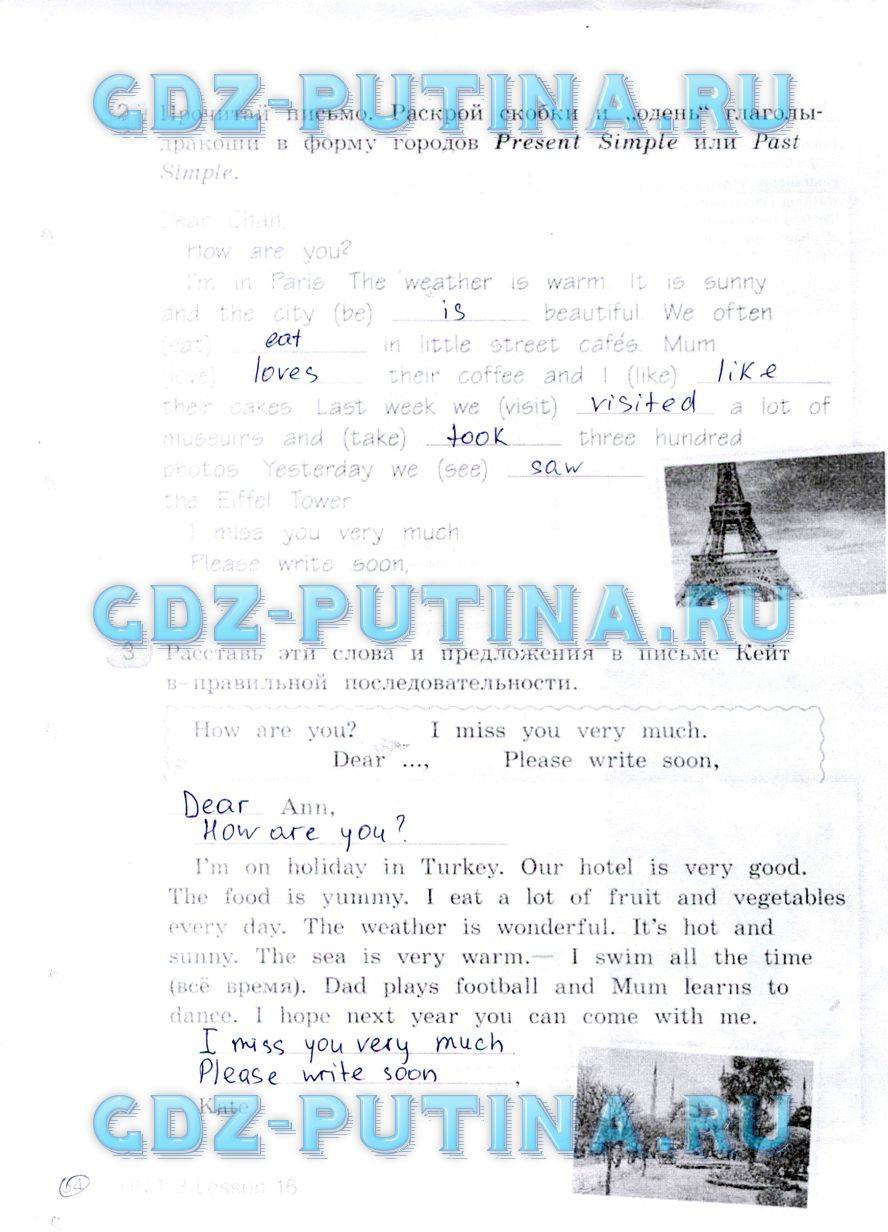 GDZ-PUTINA.RU
2 Прочитай письмо. Раскрой скобки и „одень“ глаголы-
дракоши в форму городов Present Simple или Past
Simple.
Dear Chan,
How are you?
I'm in Paris. The weather is warm. It is sunny
and the city (be) is beautiful. We often
(eat) eat in little street cafés. Mum
(love) loves their coffee and I (like) like
their cakes. Last week we (visit) visited a lot of
museums and (take) took three hundred
photos. Yesterday we (see) saw
the Eiffel Tower.
I miss you very much.
Please write soon,
GDZ-PUTINA.RU
3 Расставь эти слова и предложения в письме Кейт
в правильной последовательности.
How are you? I miss you very much.
Dear ..., Please write soon,
Dear Ann,
How are you?
I'm on holiday in Turkey. Our hotel is very good.
The food is yummy. I eat a lot of fruit and vegetables
every day. The weather is wonderful. It's hot and
sunny. The sea is very warm.— I swim all the time
(всё время). Dad plays football and Mum learns to
dance. I hope next year you can come with me.
I miss you very much
Please write soon,
Kate
GDZ-PUTINA.RU
64 UNIT 3 Lesson 16